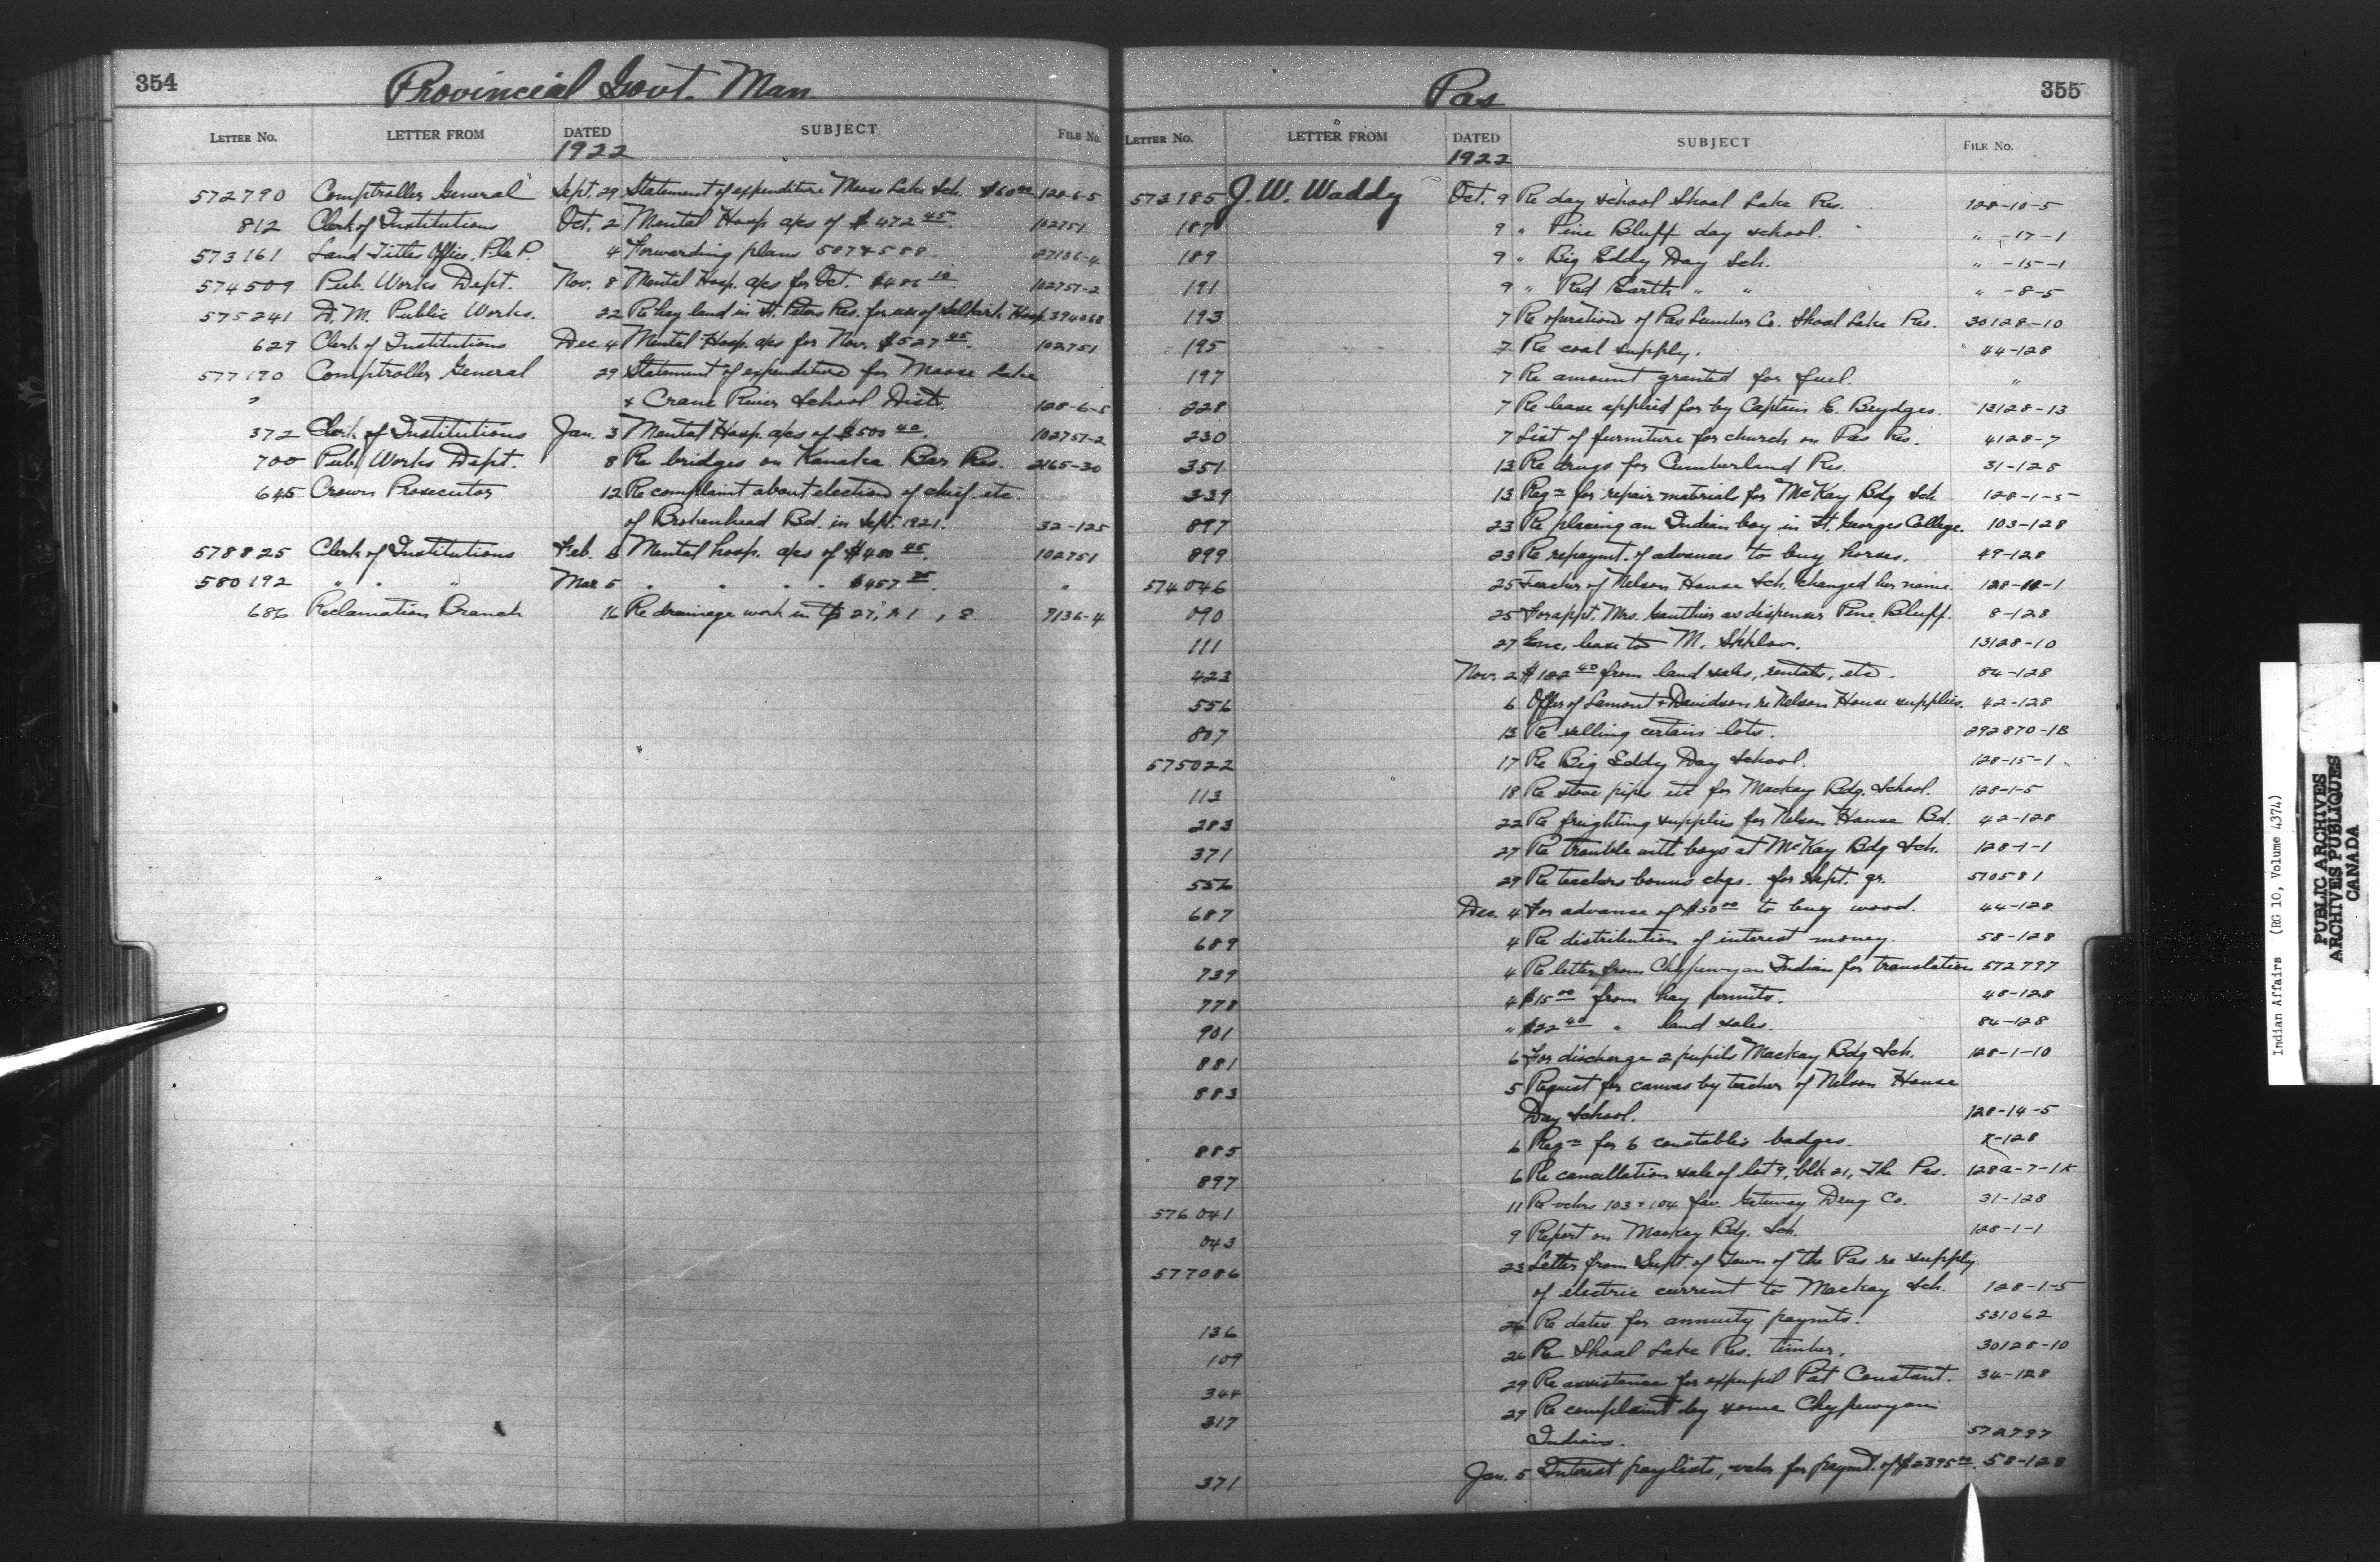 354
Provincial Govt. Man
LETTER NO. LETTER FROM DATED SUBJECT FILE No.
1922
572790 Comptroller General Sept. 29 Statement of expenditure Moose Lake Sch. $60 00 128-6-5
812 Clerk of Institutions Oct. 2 Mental Hosp a/cs of $472 45. 102751
573161 Land Titles Office, P. la P. 4 Forwarding plans 587 & 588. 27136-4
574509 Pub. Works Dept. Nov. 8 Mental Hosp. a/cs for Oct. 102751-2
575241 D. M. Public Works. 22 Re hay land in St. Peters Res. for use of Selkirk Hosp. 394068
629 Clerk of Institutions Dec. 4 Mental Hosp. a/cs for Nov. $527 45. 102751
577190 Comptroller General 29 Statement of expenditure for Moose Lake
" & Crane River School Dists. 128-6-5
372 Clerk of Institutions Jan. 3 Mental Hosp. a/cs of $500 40. 102751-2
700 Pub. Works Dept. 8 Re bridges on Kanaka Bar Res. 2165-30
645 Crown Prosecutor 12 Re complaint about election of chief etc.
of Brokenhead Bd. in Sept. 1921. 32-125
578825 Clerk of Institutions Feb. 6 Mental hosp. a/cs of $480 45. 102751
580192 " " " Mar 5 " " " " $457 "
686 Reclamation Branch 16 Re drainage work in Tp 27, R 1, 7136-4
Pas
355
LETTER NO. LETTER FROM DATED SUBJECT FILE No.
1922
573185 J. W. Waddy Oct. 9 Re day school Shoal Lake Res. 128-10-5
187 9 " Pine Bluff day school. " -17-1
189 9 " Big Eddy Day Sch. " -15-1
191 9 " Red Earth " " " -8-5
193 7 Re operations of Pas Lumber Co. Shoal Lake Res. 30128-10
195 7 Re coal supply. 44-128
197 7 Re amount granted for fuel. "
228 7 Re lease applied for by Captain E. Brydges. 13128-13
230 7 List of furniture for church on Pas Res. 4128-7
351 13 Re drugs for Cumberland Res. 31-128
339 13 Reqn for repair materials for McKay Bdg Sch. 128-1-5
897 23 Re placing an Indian boy in St. Georges College. 103-128
899 23 Re repaymt. of advances to buy horses. 49-128
574046 25 Teacher of Nelson House Sch. changed her name. 128-1
090 25 For appt. Mrs. Gauthier as dispenser Pine Bluff. 8-128
111 27 Enc. lease to M. 13128-10
423 Nov. 2 $182 40 from land sales, rentals, etc. 84-128
556 6 Offer of Lamont & Davidson re Nelson House supplies. 42-128
807 13 Re selling certain lots. 292870-1B
575022 17 Re Big Eddy Day School. 128-15-1
113 18 Re stove pipes etc for Mackay Bdg. School. 128-1-5
283 22 Re freighting supplies for Nelson House Bd. 42-128
371 27 Re trouble with boys at McKay Bdg Sch. 128-1-1
556 29 Re teachers bonus chqs. for Sept. qr. 570581
687 Dec. 4 For advance of $50 00 to buy wood. 44-128
689 4 Re distribution of interest money. 58-128
739 4 Re letter from Chypewyan Indian for translation 572797
778 4 $15 00 from hay permits. 48-128
901 " $22 40 " land sales. 84-128
881 6 For discharge 2 pupils Mackay Bdg Sch. 128-1-10
883 5 Request for canvas by teacher of Nelson House
Day School. 128-14-5
885 6 Reqn for 6 constables badges. K-128
897 6 Re cancellation sale of lot 9, blk 21, The Pas. 128a-7-1K
576041 11 Re vchrs 103 & 104 fav. Gateway Drug Co. 31-128
043 9 Report on Mackay Bdg. Sch. 128-1-1
577086 23 Letter from Supt. of Town of The Pas re supply
of electric current to Mackay Sch. 128-1-5
136 26 Re dates for annuity paymts. 531062
109 26 Re Shoal Lake Res. timber. 30128-10
344 29 Re assistance for expupil Pat Constant. 34-128
317 29 Re complaint by some Chypewyan
Indians. 572797
371 Jan. 5 Interest paylists, vchr for paymt. of $2395 58-128
Indian Affairs (RG 10, Volume 4374)
PUBLIC ARCHIVES
ARCHIVES PUBLIQUES
CANADA